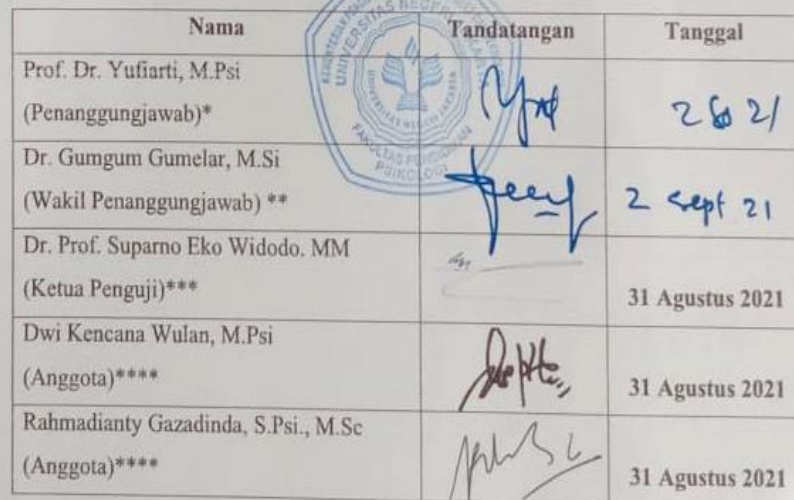 Nama Tandatangan Tanggal
Prof. Dr. Yufiarti, M.Psi
(Penanggungjawab)*
Dr. Gumgum Gumelar, M.Si
(Wakil Penanggungjawab) **
2 Sept 21
Dr. Prof. Suparno Eko Widodo. MM
(Ketua Penguji)***
31 Agustus 2021
Dwi Kencana Wulan, M.Psi
(Anggota)****
31 Agustus 2021
Rahmadianty Gazadinda, S.Psi., M.Sc
(Anggota)****
31 Agustus 2021
UNIVERSITAS NEGERI JAKARTA
FAKULTAS PENDIDIKAN
PSIKOLOGI